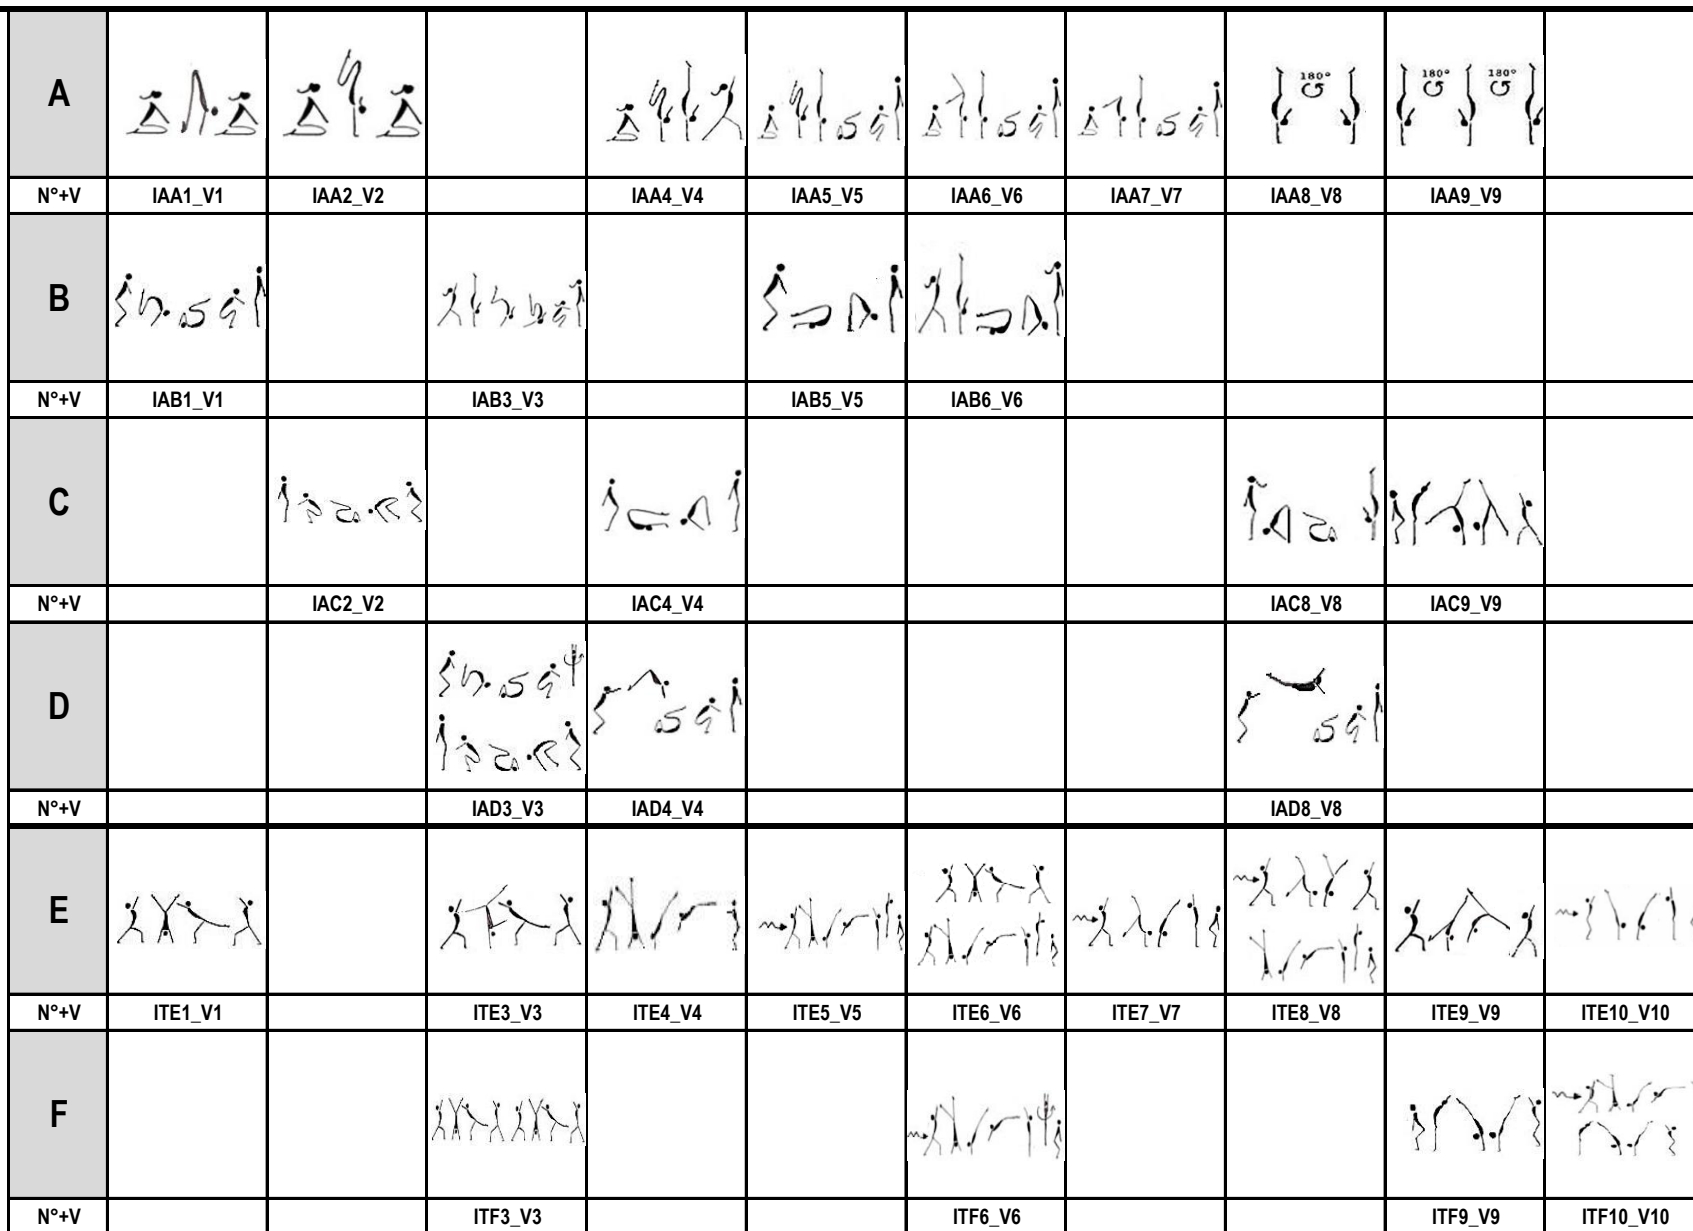 A
180°
180°
180°
N°+V IAA1_V1 IAA2_V2 IAA4_V4 IAA5_V5 IAA6_V6 IAA7_V7 IAA8_V8 IAA9_V9
B
N°+V IAB1_V1 IAB3_V3 IAB5_V5 IAB6_V6
C
N°+V IAC2_V2 IAC4_V4 IAC8_V8 IAC9_V9
D
N°+V IAD3_V3 IAD4_V4 IAD8_V8
E
N°+V ITE1_V1 ITE3_V3 ITE4_V4 ITE5_V5 ITE6_V6 ITE7_V7 ITE8_V8 ITE9_V9 ITE10_V10
F
N°+V ITF3_V3 ITF6_V6 ITF9_V9 ITF10_V10